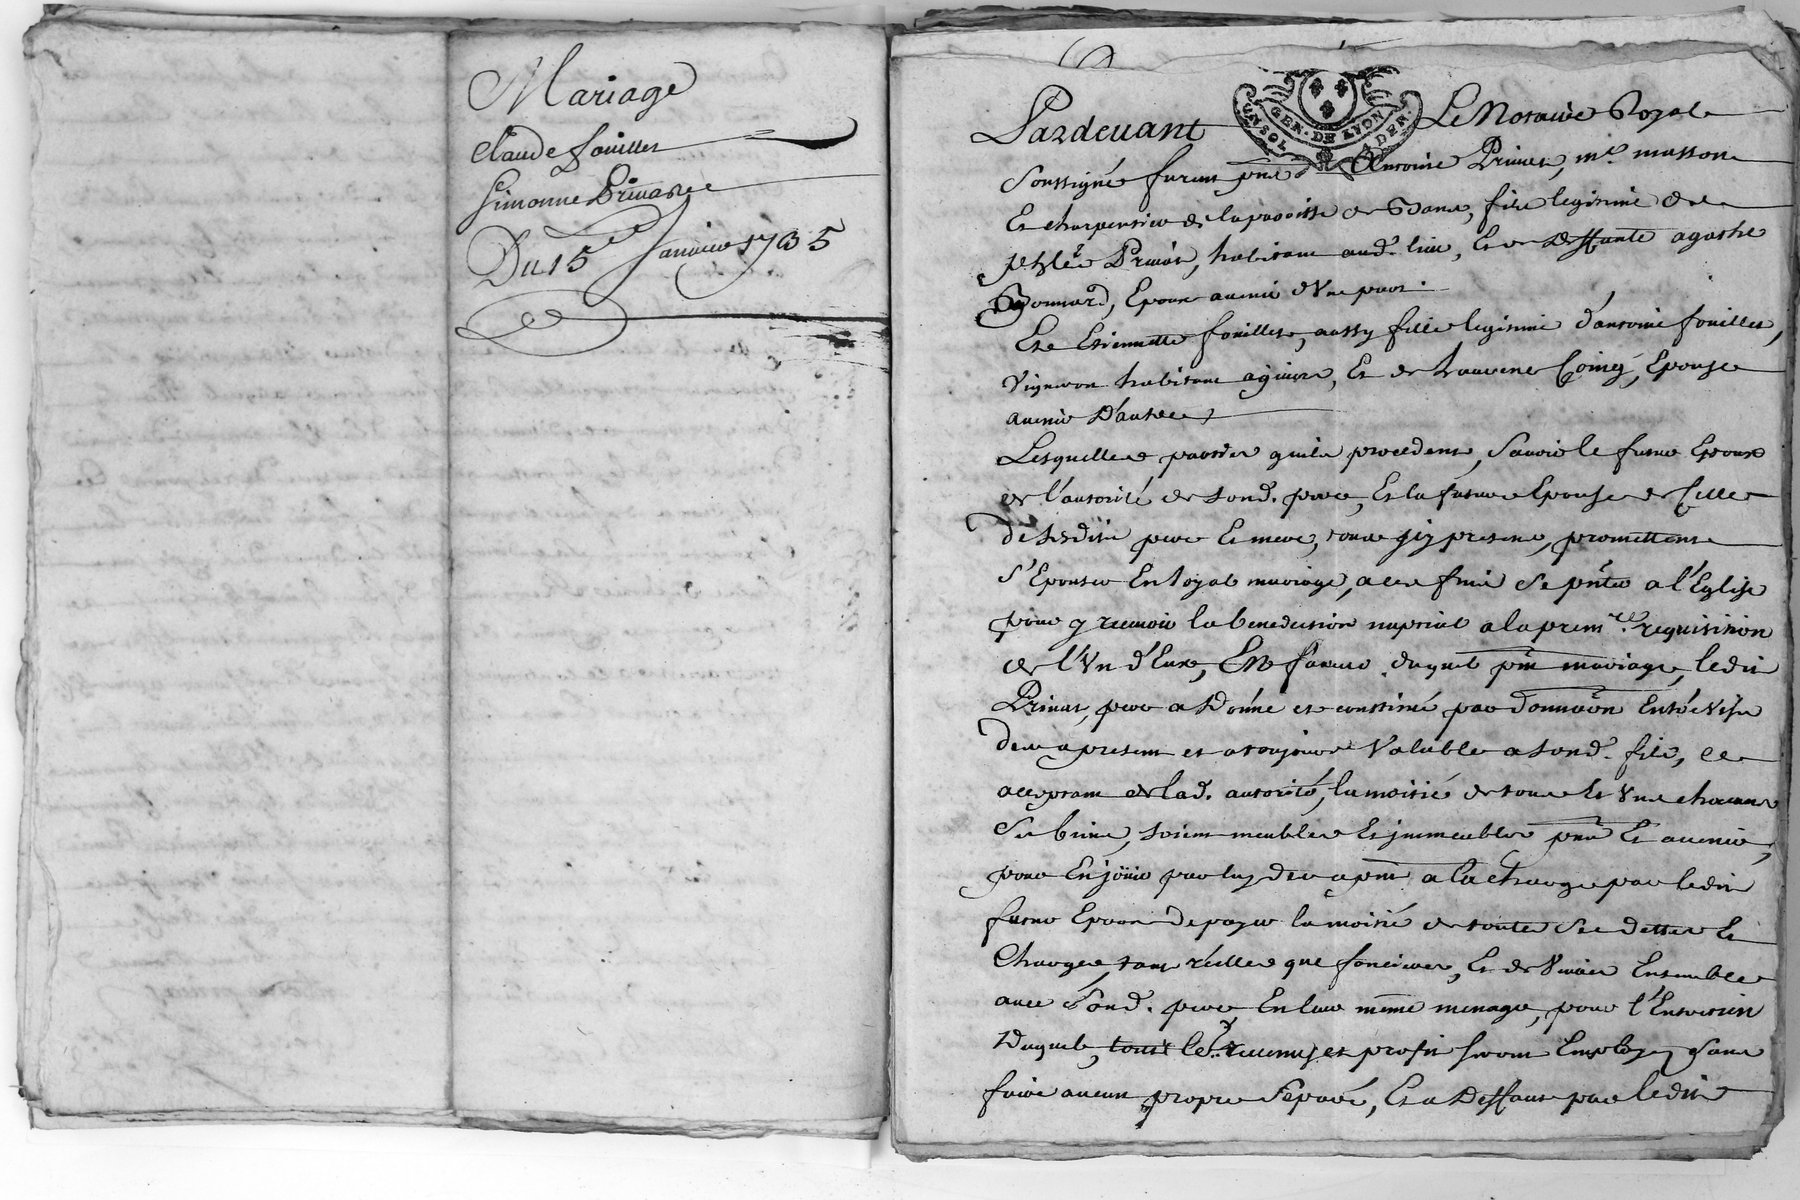 Mariage
Claude fouillet
Simonne Privat
Du 15e Janvier 1735
GEN. DE LYON
UN SOL
DEN.
Pardevant Le Notaire Royal
Soussigné furent pnt Antoine Privat, me. masson
Et charpentier de la paroisse de fils legitime de
Privat, habitant aud. lieu, Et de deffunte agathe
Bonnard, Epoux avenir d'Une part.
Et Etiennette fouillet, aussy fille legitime d'antoine fouillet,
Vigneron habitant Et de Coing, Epouse
avenir D'autre
Lesquelles parties quils procedent, Savoir le futur Epoux
de l'autorité de sond. pere, Et la future Epouse de Celle
de sesdits pere Et mere, tous jcy presents, promettent
s'Epouser En loyal mariage, a ces fins se pnter a l'Eglise
pour y recevoir la benediction nuptial a la premre. requisition
de l'Un d'Eux, En faveur duquel pnt mariage, ledit
Privat, pere a Donné et constitué par donnaôn Entre Vifs
des apresent et a toujours Valable a sond. fils, ce
acceptant de lad. autorité, la moitié de tous Et Un chacuns
Ses biens, soient meubles Et jmmeubles pnts Et avenir,
pour En joüir par luy des apnt a la Charge par ledit
futur Epoux de payer la moitié de toutes Ses dettes Et
Charges, tant réelles que foncieres, Et de Vivre Ensemble
avec Sond. pere, En leur même menage, pour l'Entretien
Duquel, tous les revenus et profits seront Employés sans
faire aucun propre Separé, Et a Deffaut par ledit